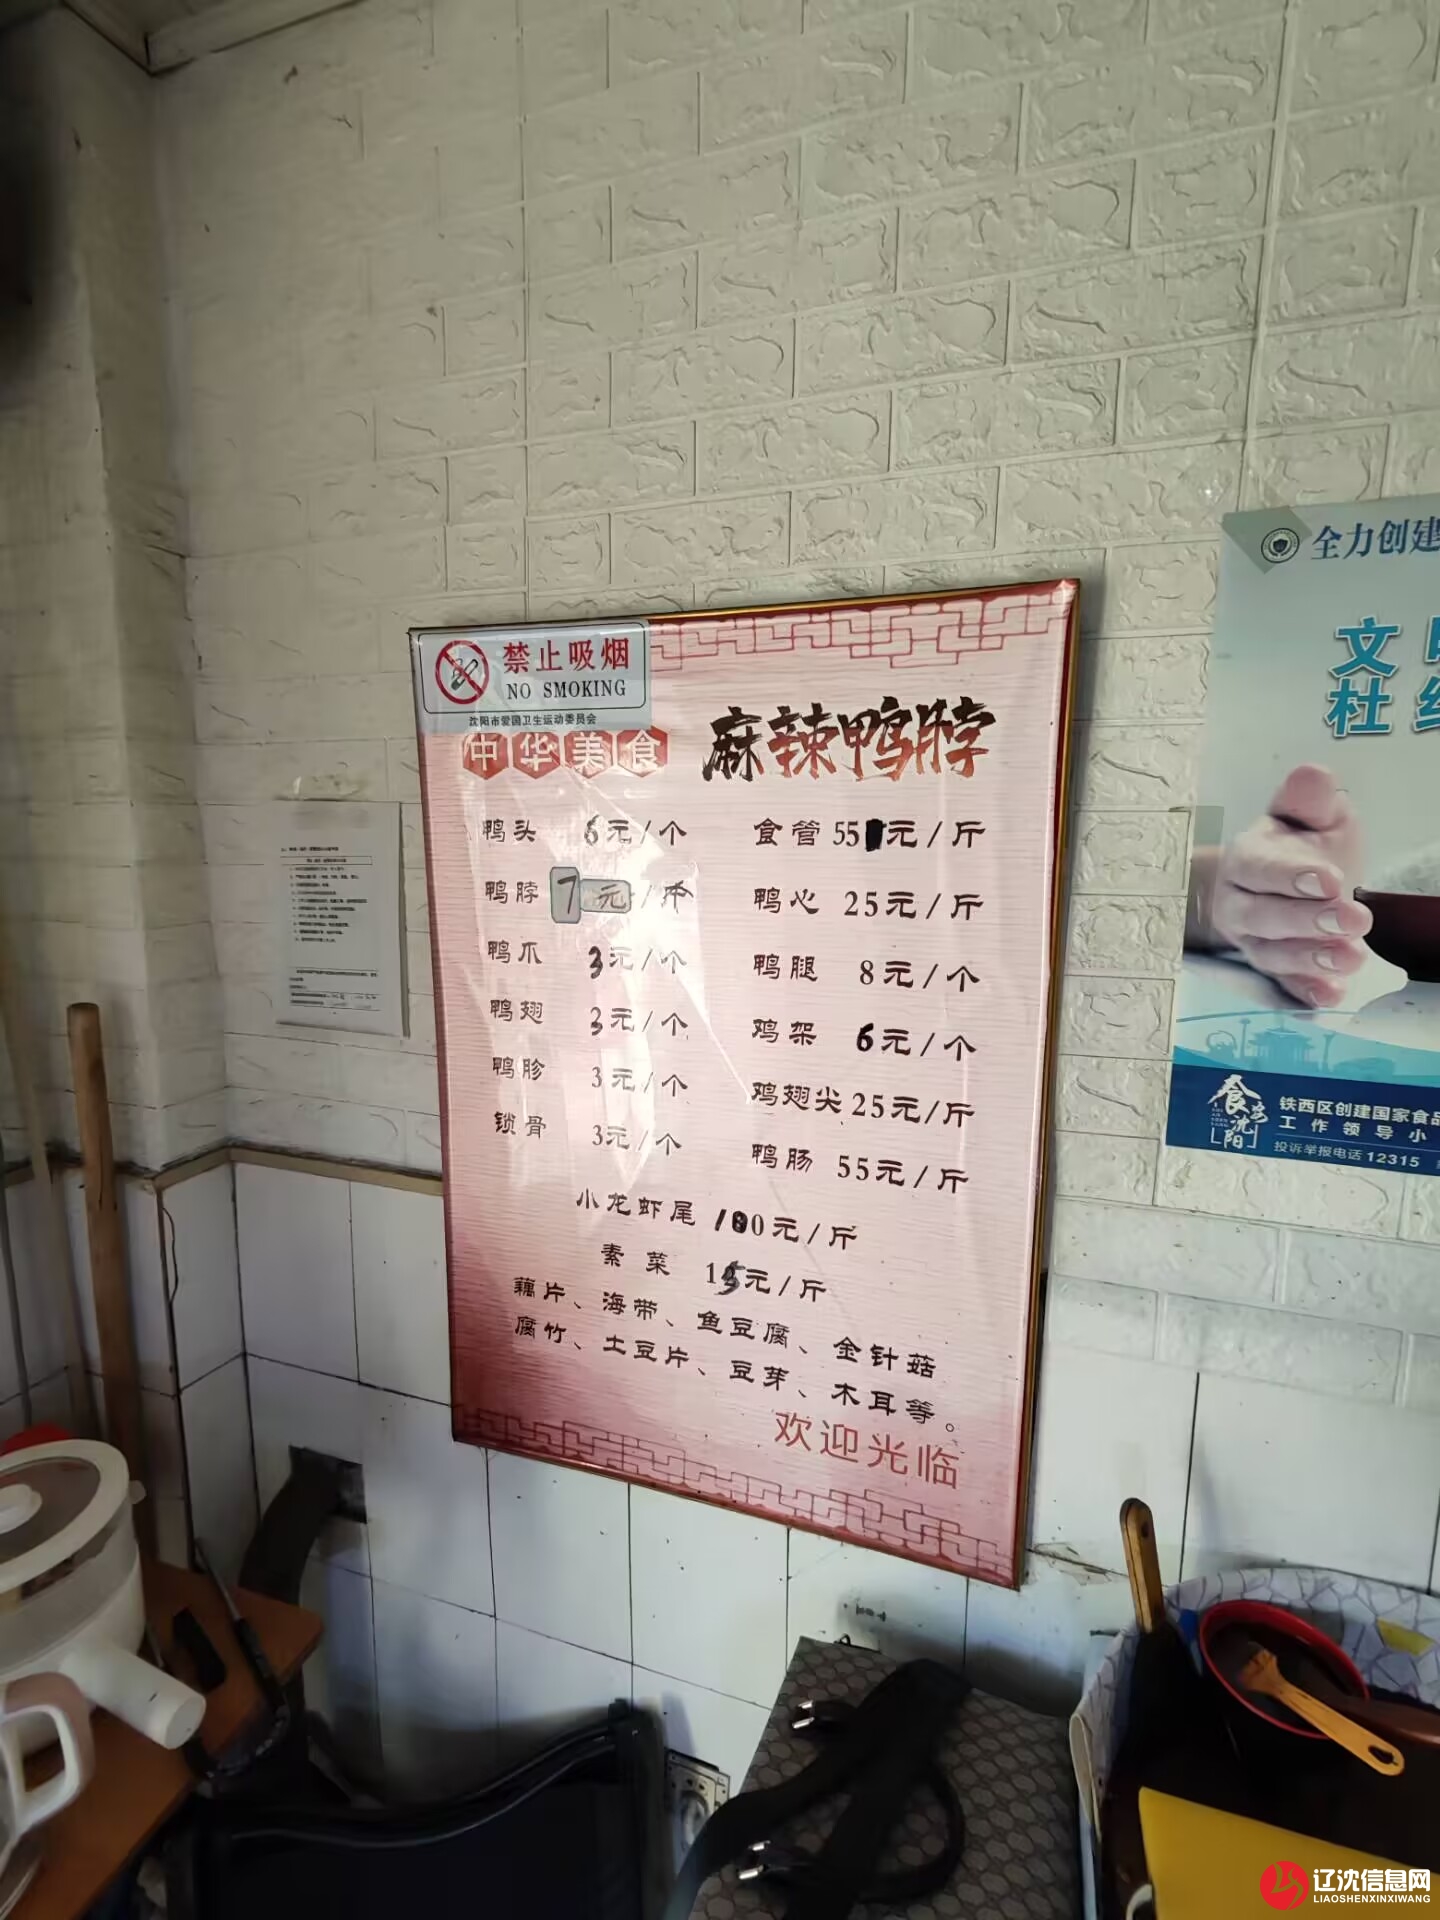 禁止吸烟
NO SMOKING
沈阳市爱国卫生运动委员会
中华美食
麻辣鸭脖
鸭头 6元/个
鸭脖 7元/个
鸭爪 3元/个
鸭翅 3元/个
鸭胗 3元/个
锁骨 3元/个
食管 55元/斤
鸭心 25元/斤
鸭腿 8元/个
鸡架 6元/个
鸡翅尖 25元/斤
鸭肠 55元/斤
小龙虾尾 100元/斤
素菜 15元/斤
藕片、海带、鱼豆腐、金针菇
腐竹、土豆片、豆芽、木耳等。
欢迎光临
全力创建
文
杜
食安沈阳
铁西区创建国家食品
工作领导小
投诉举报电话 12315
辽沈信息网
LIAOSHENXINXIWANG